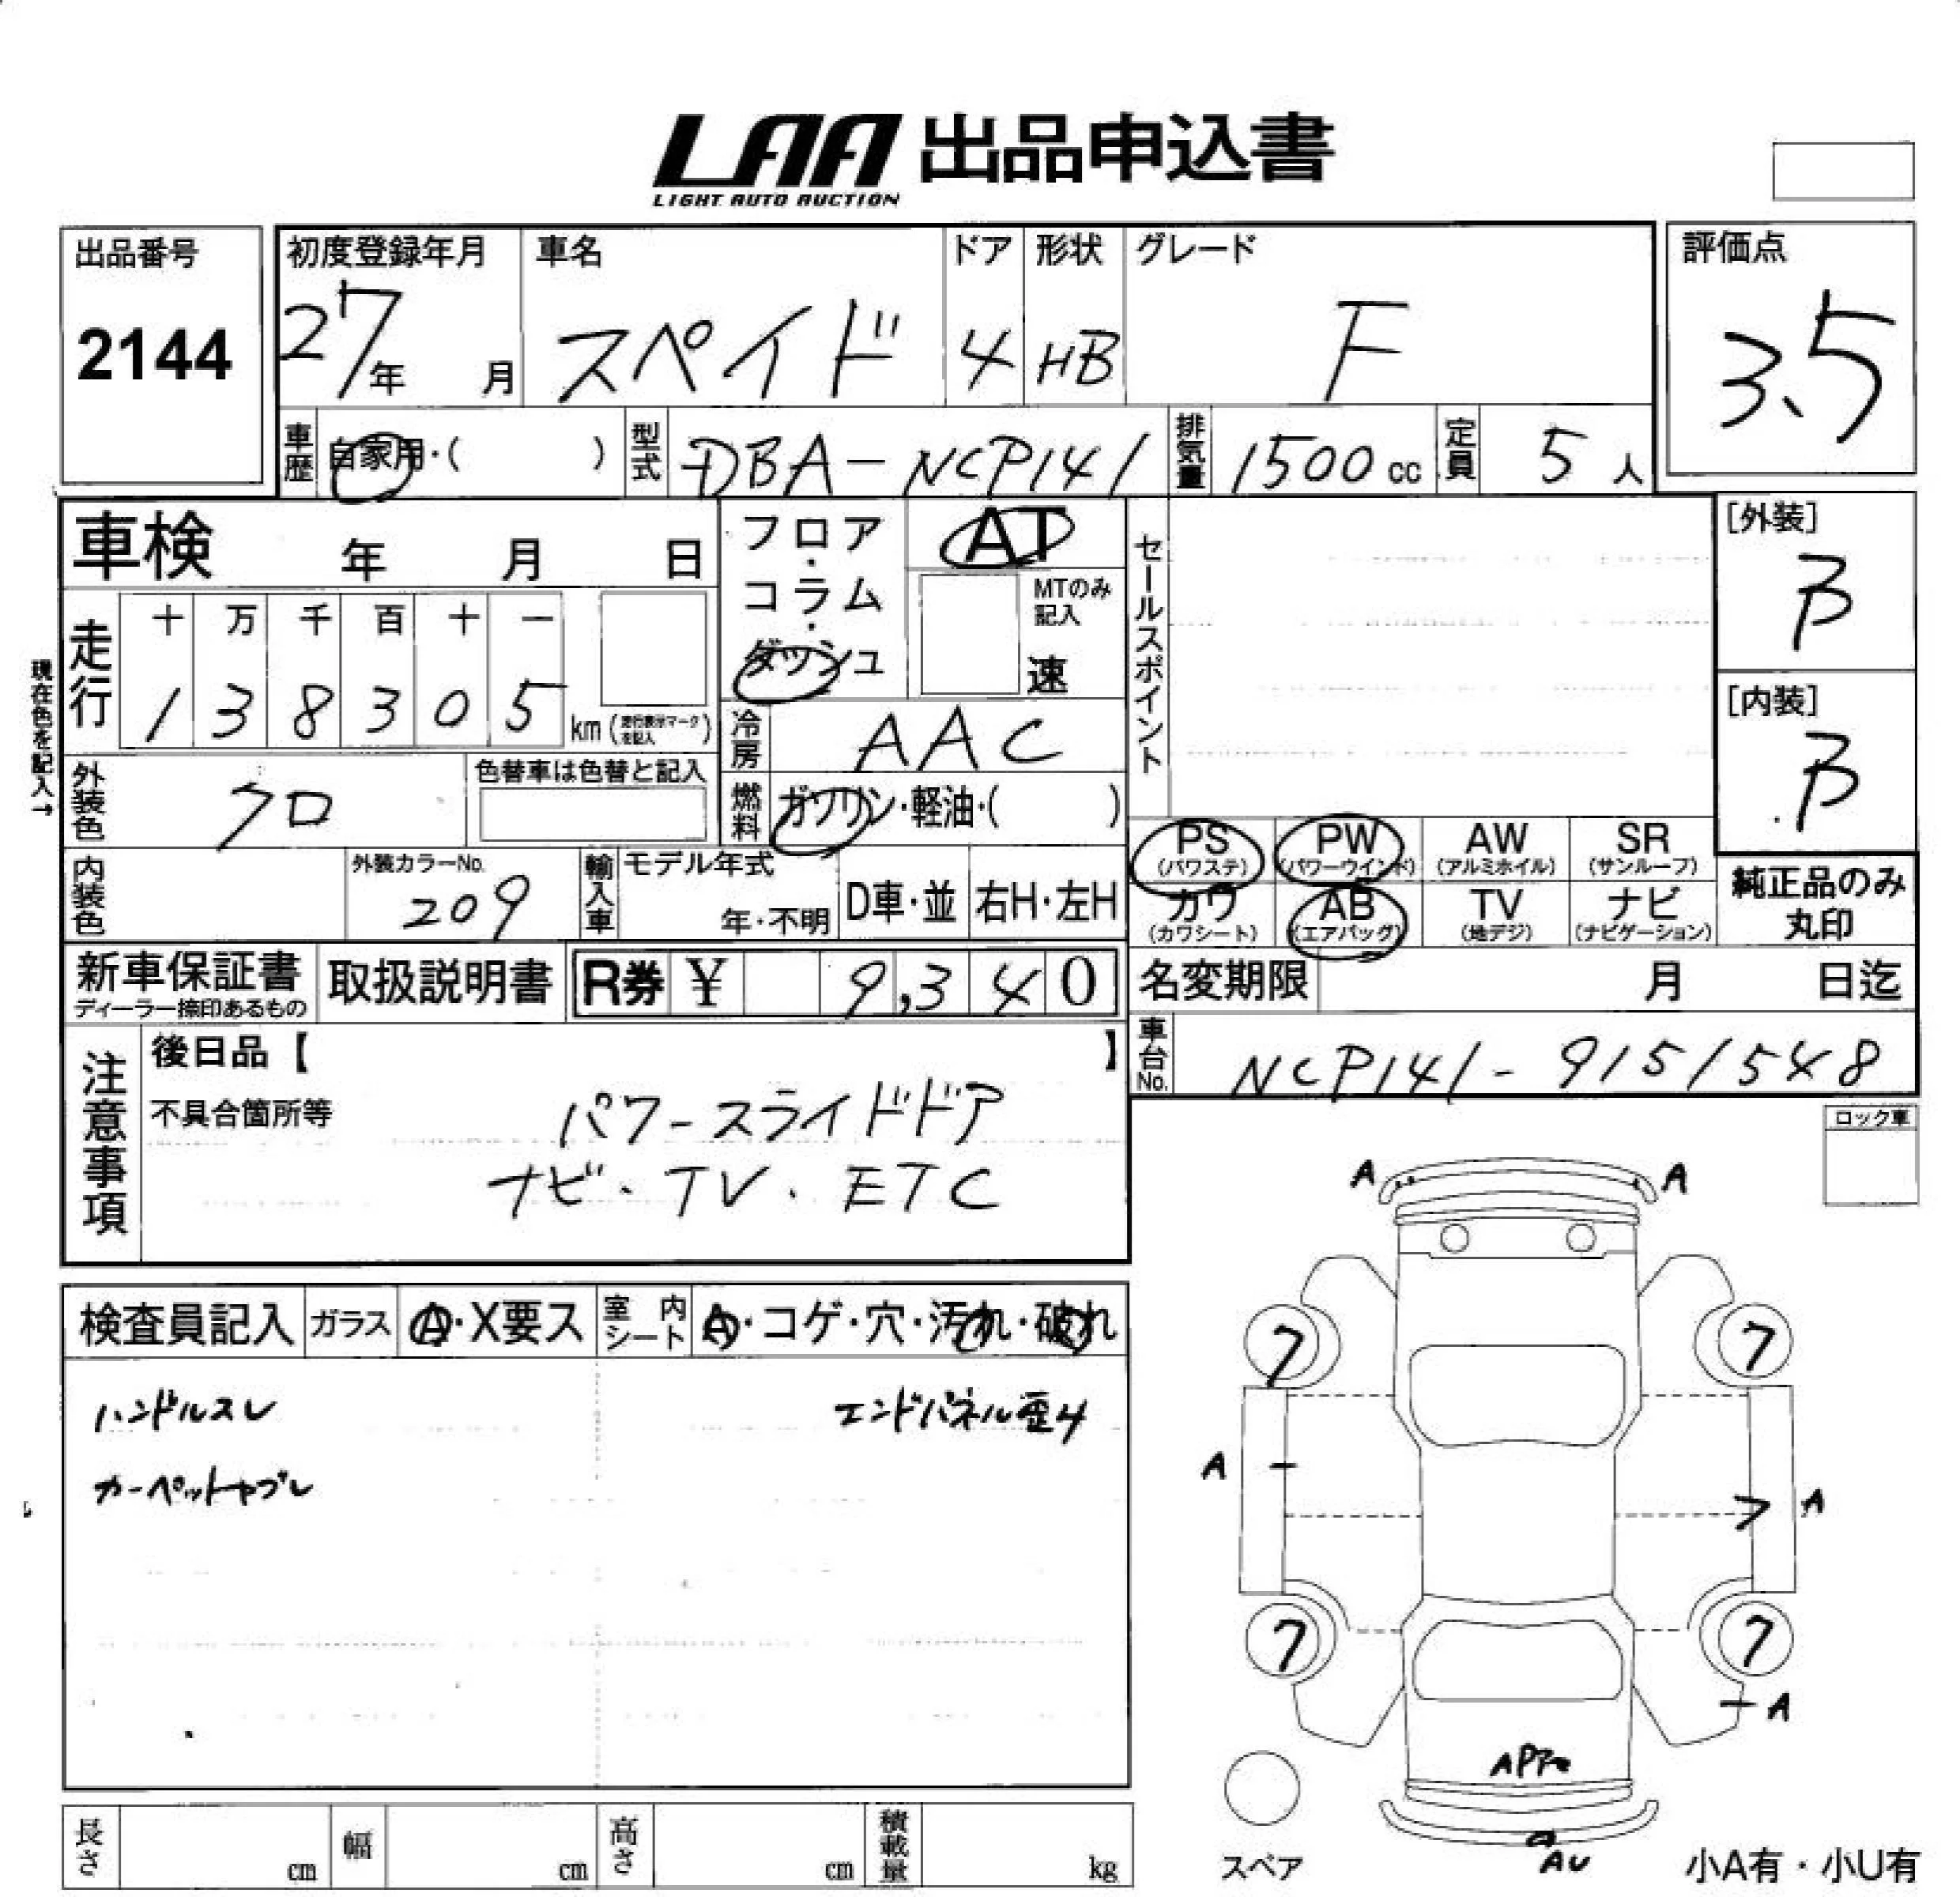 LAA 出品申込書
LIGHT AUTO AUCTION
出品番号
2144
初度登録年月
27年 月
車名
スペイド
ドア
4
形状
HB
グレード
F
評価点
3.5
車歴
自家用・( )
型式
DBA-NCP141
排気量
1500cc
定員
5人
車検 年 月 日
フロア・コラム・ダッシュ
AT
MTのみ記入
速
セールスポイント
[外装]
B
[内装]
B
現在色を記入→
走行
十 万 千 百 十 一
1 3 8 3 0 5
km (走行表示マークを記入)
冷房
AAC
外装色
クロ
色替車は色替と記入
燃料
ガソリン・軽油・( )
内装色
外装カラーNo.
209
輸入車
モデル年式
年・不明
D車・並
右H・左H
PS (パワステ)
PW (パワーウインド)
AW (アルミホイル)
SR (サンルーフ)
カワ (カワシート)
AB (エアバッグ)
TV (地デジ)
ナビ (ナビゲーション)
純正品のみ丸印
新車保証書
ディーラー捺印あるもの
取扱説明書
R券 ¥ 9,340
名変期限 月 日迄
車台No.
NCP141-9151548
注意事項
後日品【 】
不具合箇所等
パワースライドドア
ナビ・TV・ETC
ロック車
検査員記入
ガラス
A・X要ス
室内シート
A・コゲ・穴・汚れ・破れ
ハンドルスレ
エンドパネル歪み
カーペットヤブレ
A A
7 7
A A
7 7
A
AU
スペア
小A有・小U有
長さ cm
幅 cm
高さ cm
積載量 kg